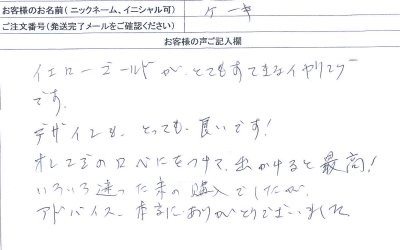 お客様のお名前(ニックネーム、イニシャル可) ケーキ
ご注文番号(発送完了メールをご確認ください)
お客様の声ご記入欄
イエローゴールドが、とてもすてきなイヤリング
です。
デザインも、とっても、良いです!
オレンジの口べにをつけて、出かけると最高!
いろいろ迷った末の購入でしたが、
アドバイス、本当にありがとうございました